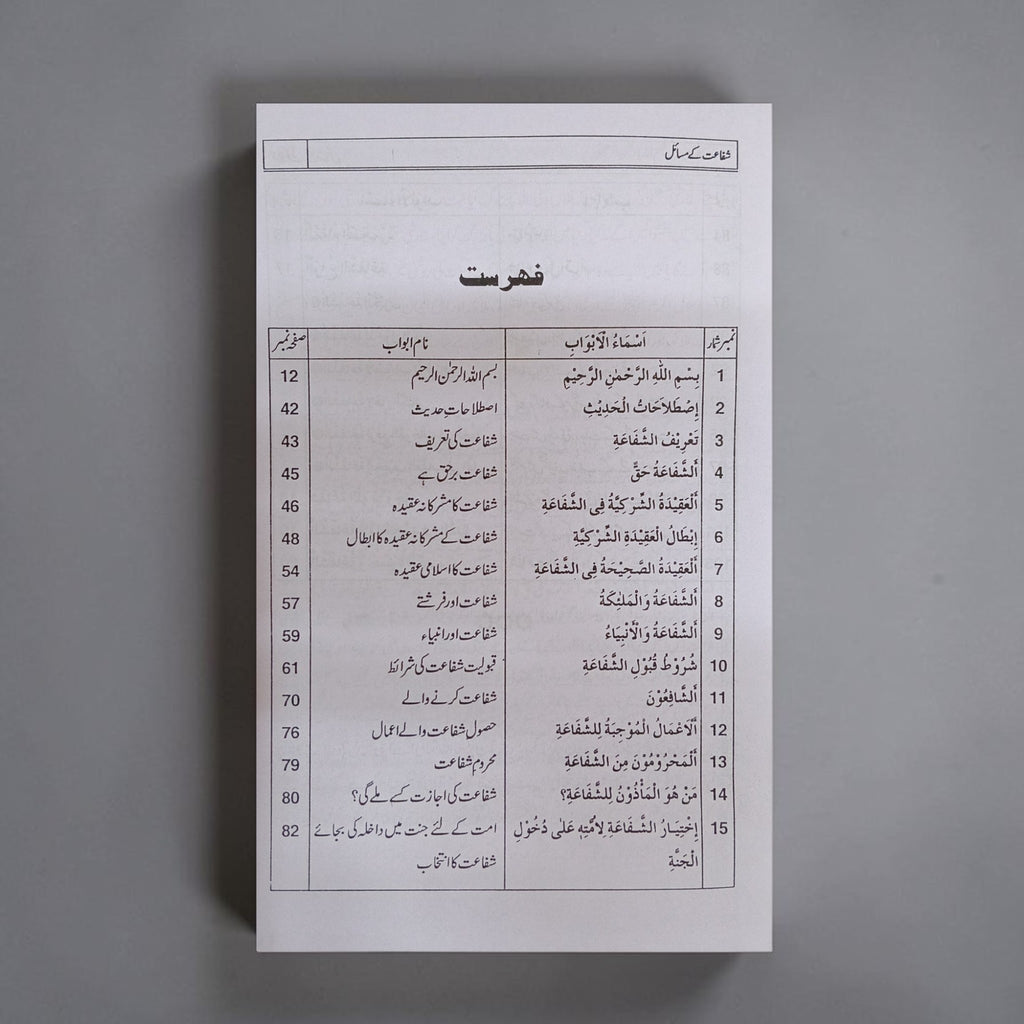 شفاعت کے مسائل
فہرست
نمبر شمار اَسْمَاءُ الْاَبْوَابِ نام ابواب صفحہ نمبر
1 بِسْمِ اللّٰهِ الرَّحْمٰنِ الرَّحِيْمِ بسم اللہ الرحمٰن الرحیم 12
2 اِصْطَلاَحَاتُ الْحَدِيْثِ اصطلاحاتِ حدیث 42
3 تَعْرِيْفُ الشَّفَاعَةِ شفاعت کی تعریف 43
4 اَلشَّفَاعَةُ حَقٌّ شفاعت برحق ہے 45
5 اَلْعَقِيْدَةُ الشِّرْكِيَّةُ فِى الشَّفَاعَةِ شفاعت کا مشرکانہ عقیدہ 46
6 اِبْطَالُ الْعَقِيْدَةِ الشِّرْكِيَّةِ شفاعت کے مشرکانہ عقیدہ کا ابطال 48
7 اَلْعَقِيْدَةُ الصَّحِيْحَةُ فِى الشَّفَاعَةِ شفاعت کا اسلامی عقیدہ 54
8 اَلشَّفَاعَةُ وَالْمَلٰئِكَةُ شفاعت اور فرشتے 57
9 اَلشَّفَاعَةُ وَالْاَنْبِيَاءُ شفاعت اور انبیاء 59
10 شُرُوْطُ قُبُوْلِ الشَّفَاعَةِ قبولیت شفاعت کی شرائط 61
11 اَلشَّافِعُوْنَ شفاعت کرنے والے 70
12 اَلْاَعْمَالُ الْمُوْجِبَةُ لِلشَّفَاعَةِ حصول شفاعت والے اعمال 76
13 اَلْمَحْرُوْمُوْنَ مِنَ الشَّفَاعَةِ محرومِ شفاعت 79
14 مَنْ هُوَ الْمَأْذُوْنُ لِلشَّفَاعَةِ؟ شفاعت کی اجازت کسے ملے گی؟ 80
15 اِخْتِيَارُ الشَّفَاعَةِ لِاُمَّتِهٖ عَلٰى دُخُوْلِ امت کے لئے جنت میں داخلہ کی بجائے 82
الْجَنَّةِ شفاعت کا انتخاب